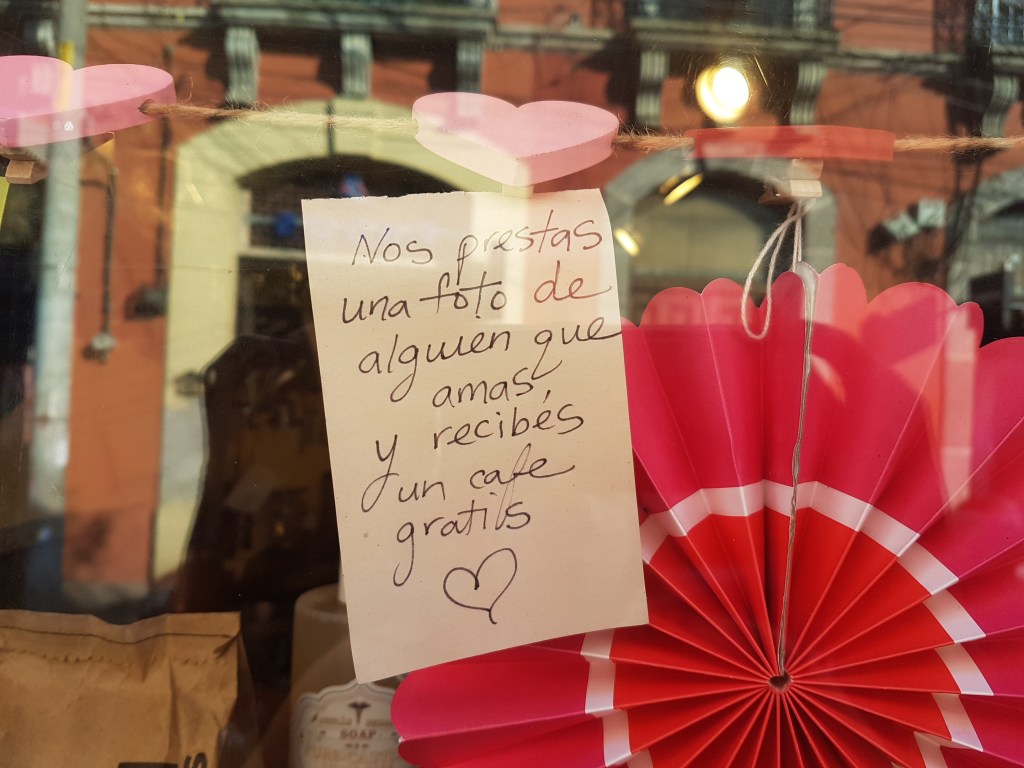 Nos prestas
una foto de
alguien que
amas,
y recibes
un cafe
gratis
SOAP